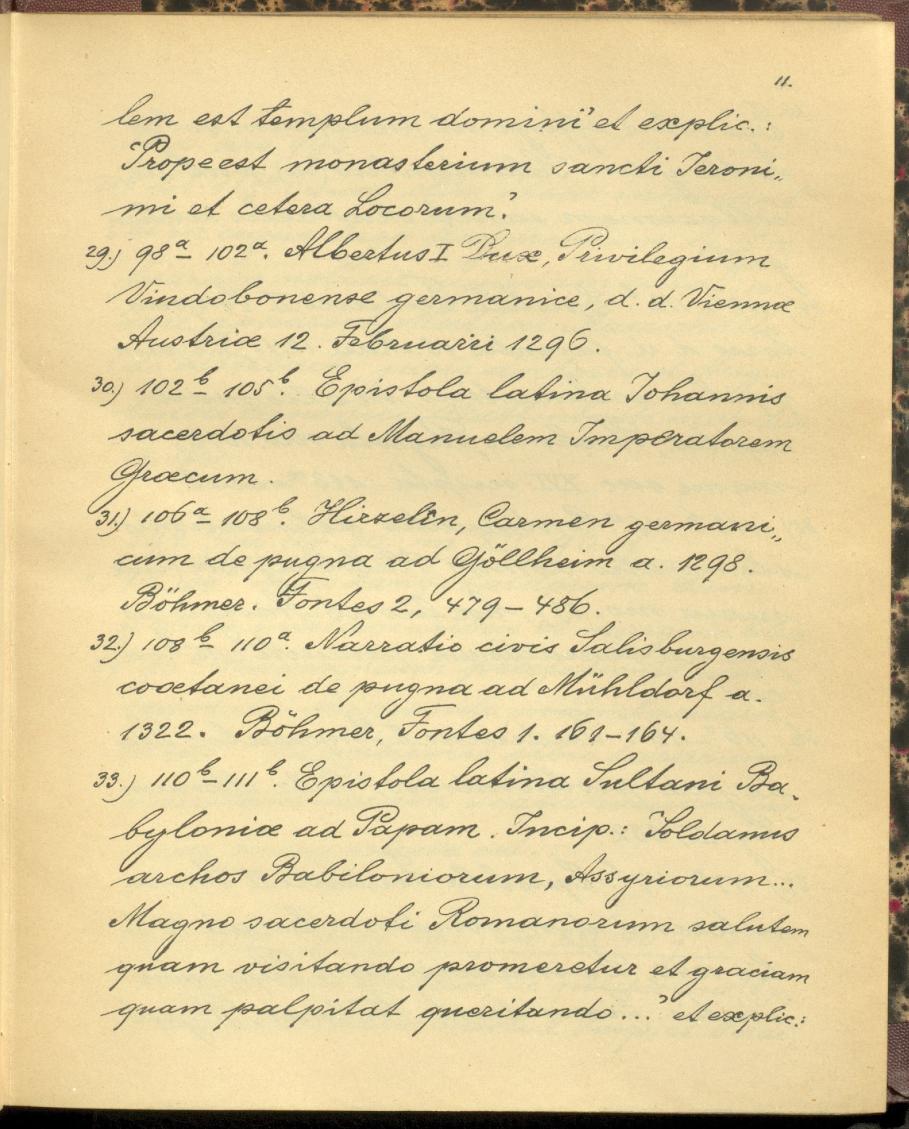 11.
lem est templum domini' et explic.:
'Prope est monasterium sancti Jeroni„
mi et cetera Locorum.'
29.) 98ª – 102ª. Albertus I Dux, Privilegium
Vindobonense germanice, d. d. Viennæ
Austriæ 12. Februarii 1296.
30.) 102ᵇ – 105ᵇ. Epistola latina Johannis
sacerdotis ad Manuelem Imperatorem
Græcum.
31.) 106ª – 108ᵇ. Hirzelin, Carmen germani„
cum de pugna ad Göllheim a. 1298.
Böhmer. Fontes 2, 479 – 486.
32.) 108ᵇ – 110ª. Narratio civis Salisburgensis
coætanei de pugna ad Mühldorf a.
1322. Böhmer, Fontes 1. 161–164.
33.) 110ᵇ – 111ᵇ. Epistola latina Sultani Ba„
byloniæ ad Papam. Incip.: 'Soldanus
archos Babiloniorum, Assyriorum...
Magno sacerdoti Romanorum salutem
quam visitando promeretur et graciam
quam palpitat queritando...' et explic.: